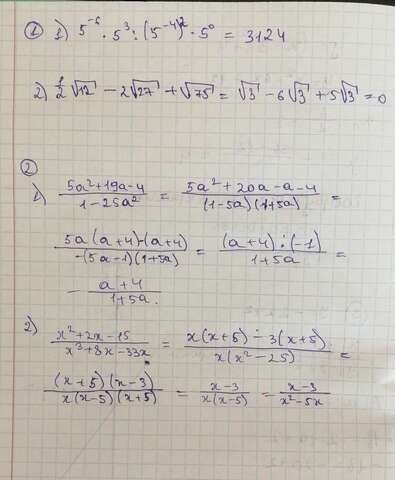 ① 1) 5⁻⁶ · 5³ : (5⁻⁴)² · 5⁰ = 3124
2) 1/2 √12 − 2√27 + √75 = √3 − 6√3 + 5√3 = 0
②
1) (5a² + 19a − 4)/(1 − 25a²) = (5a² + 20a − a − 4)/((1 − 5a)(1 + 5a)) =
(5a(a + 4) − (a + 4))/(−(5a − 1)(1 + 5a)) = ((a + 4) : (−1))/(1 + 5a) =
− (a + 4)/(1 + 5a).
2) (x² + 2x − 15)/(x³ + 8x − 33x) = (x(x + 5) − 3(x + 5))/(x(x² − 25)) =
((x + 5)(x − 3))/(x(x − 5)(x + 5)) = (x − 3)/(x(x − 5)) = (x − 3)/(x² − 5x)